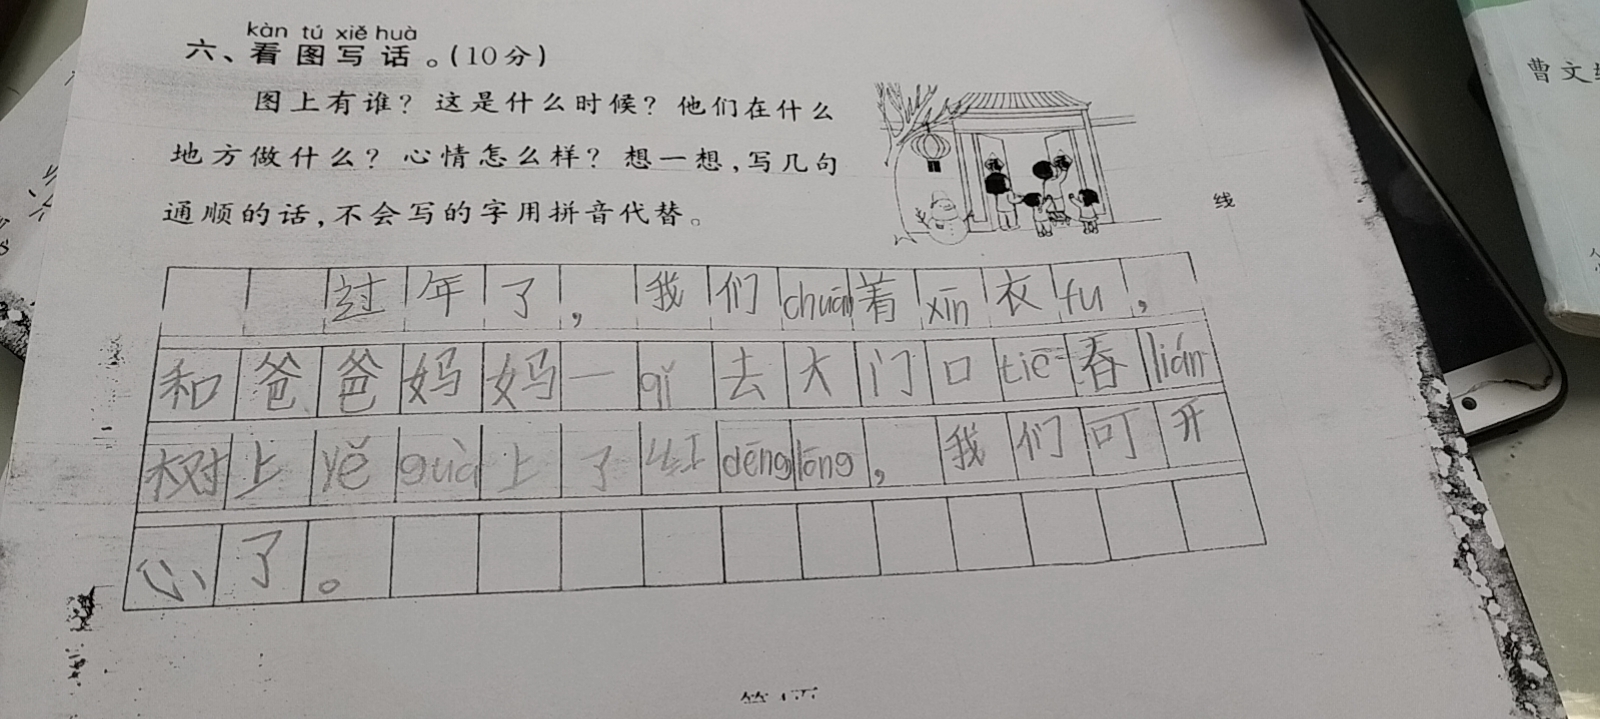 kàn tú xiě huà
六、看图写话。(10分)
图上有谁？这是什么时候？他们在什么
地方做什么？心情怎么样？想一想，写几句
通顺的话，不会写的字用拼音代替。
线
曹文
过年了，我们chuān着xīn衣fu，
和爸爸妈妈一qǐ去大门口tiē春lián
树上yě guà上了红dēng lōng，我们可开
心了。